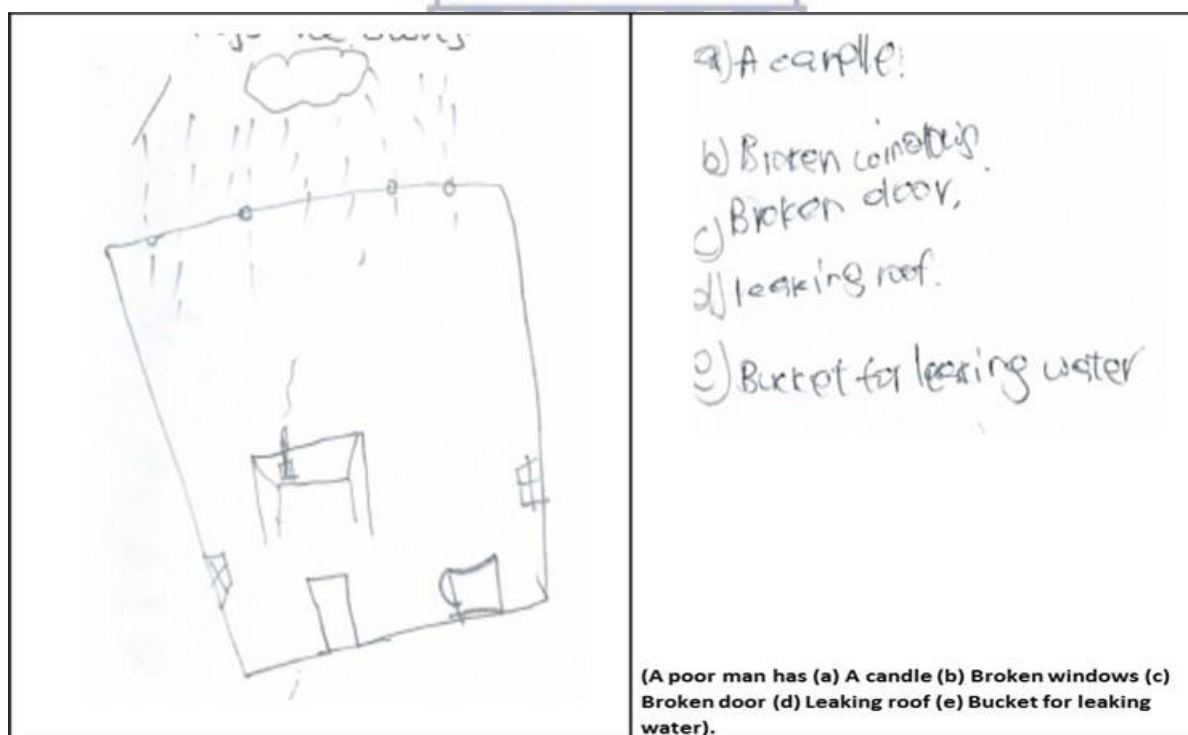 a) A candle.
b) Broken windows.
c) Broken door,
d) leaking roof.
e) Bucket for leaking water
(A poor man has (a) A candle (b) Broken windows (c)
Broken door (d) Leaking roof (e) Bucket for leaking
water).